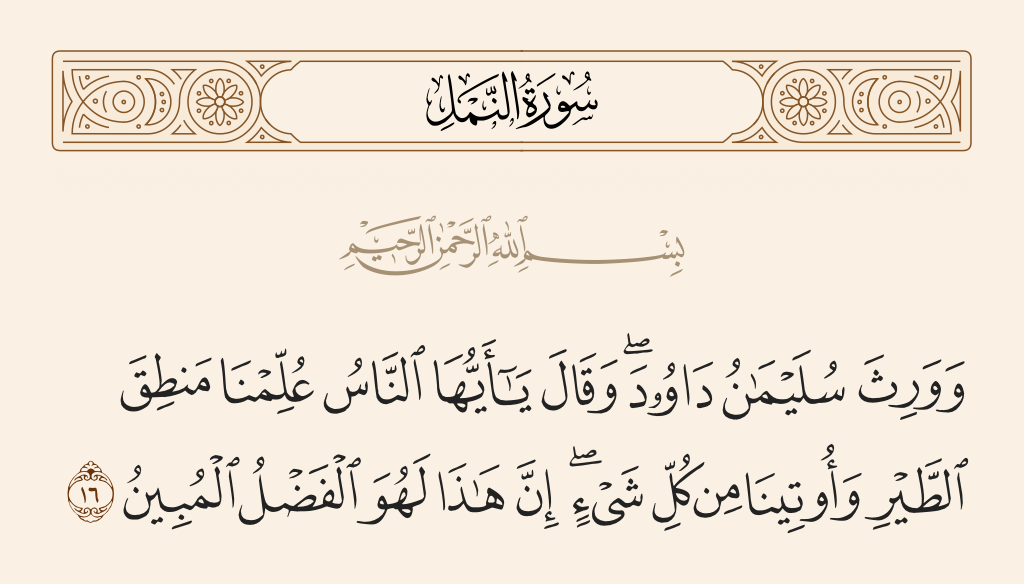 سُورَةُ النَّمۡلِ
بِسۡمِ ٱللَّهِ ٱلرَّحۡمَٰنِ ٱلرَّحِيمِ
وَوَرِثَ سُلَيۡمَٰنُ دَاوُۥدَۖ وَقَالَ يَٰٓأَيُّهَا ٱلنَّاسُ عُلِّمۡنَا مَنطِقَ
ٱلطَّيۡرِ وَأُوتِينَا مِن كُلِّ شَيۡءٍۖ إِنَّ هَٰذَا لَهُوَ ٱلۡفَضۡلُ ٱلۡمُبِينُ ١٦